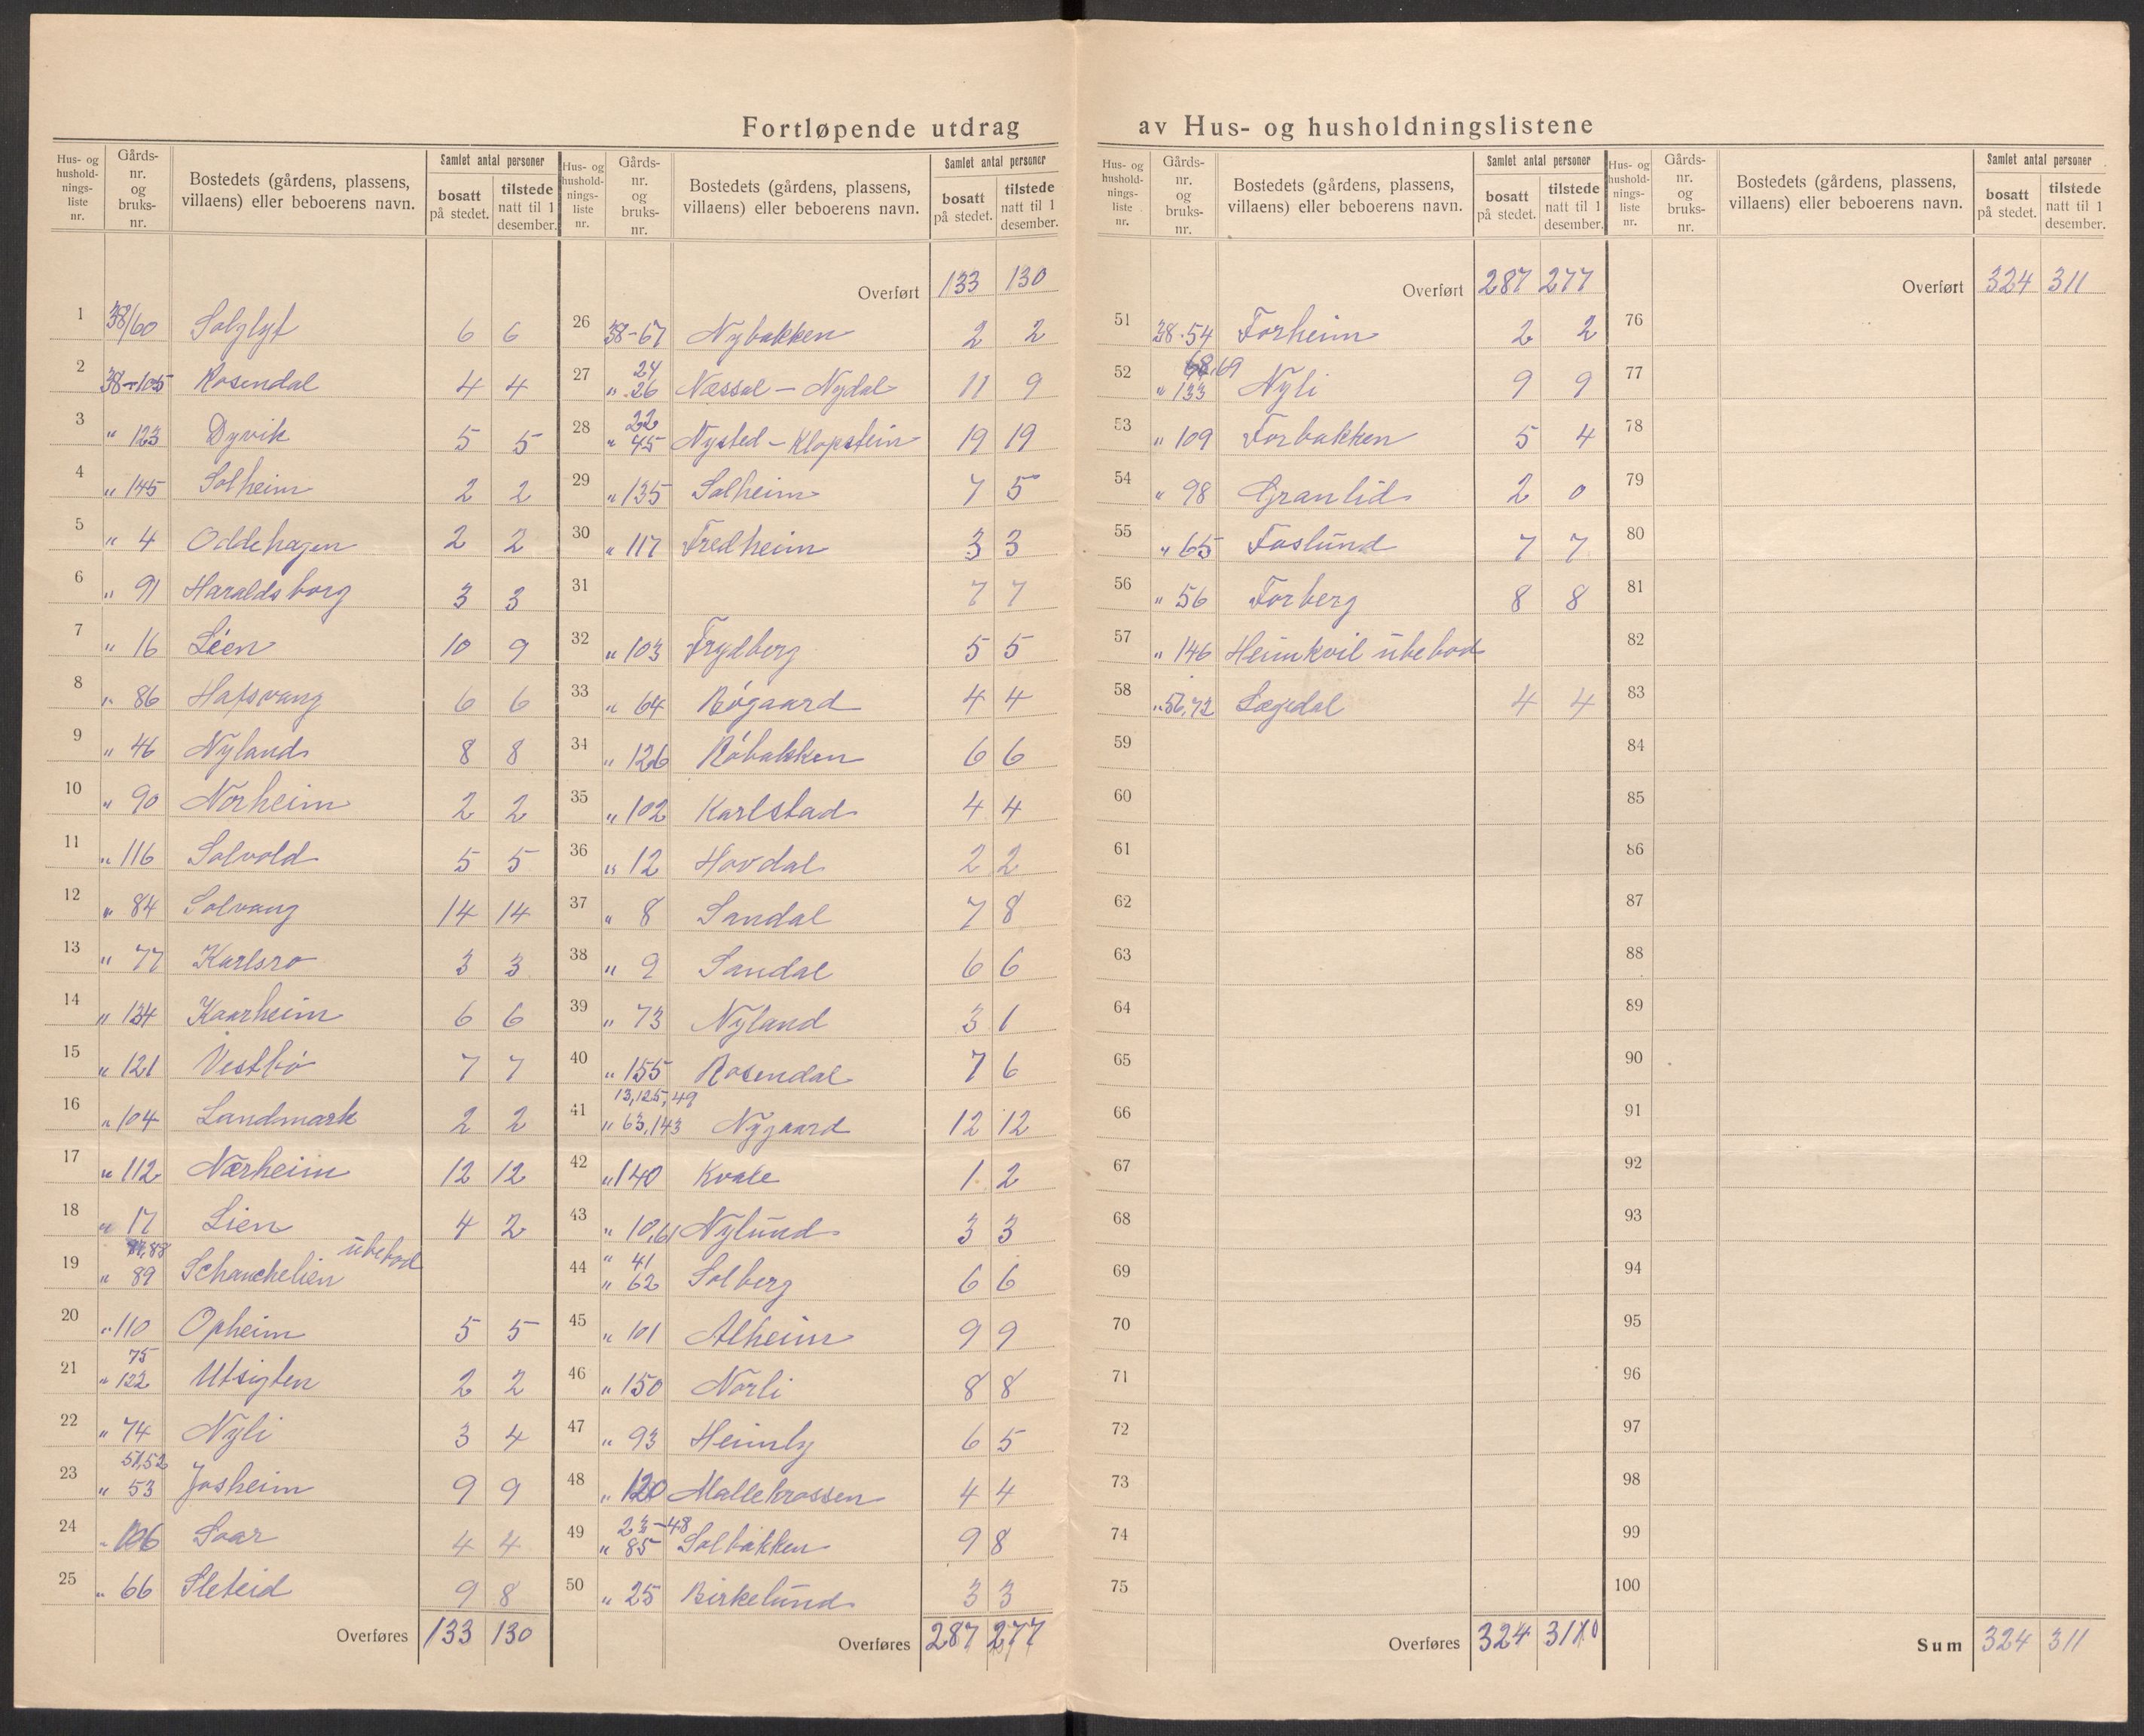 Fortløpende utdrag av Hus- og husholdningslistene
Hus- og hushold-nings-liste nr. Gårds-nr. og bruks-nr. Bostedets (gårdens, plassens, villaens) eller beboerens navn. Samlet antal personer bosatt på stedet. tilstede natt til 1 desember.
1 38/60 Solglyt 6 6
2 38-105 Rosendal 4 4
3 " 123 Dyvik 5 5
4 " 145 Solheim 2 2
5 " 4 Oddehagen 2 2
6 " 91 Haraldsborg 3 3
7 " 16 Lien 10 9
8 " 86 Hafsvang 6 6
9 " 46 Nyland 8 8
10 " 90 Norheim 2 2
11 " 116 Solvold 5 5
12 " 84 Solvang 14 14
13 " 77 Karlsro 3 3
14 " 134 Kaarheim 6 6
15 " 121 Vestbø 7 7
16 " 104 Landmark 2 2
17 " 112 Nærheim 12 12
18 " 17 Lien 4 2
19 88 " 89 Schanchelien ubebod
20 " 110 Opheim 5 5
21 75 " 122 Utsigten 2 2
22 " 74 Nyli 3 4
23 51,52 " 53 Josheim 9 9
24 " 106 Soar 4 4
25 " 66 Sleteid 9 8
Overføres 133 130
Hus- og hushold-nings-liste nr. Gårds-nr. og bruks-nr. Bostedets (gårdens, plassens, villaens) eller beboerens navn. Samlet antal personer bosatt på stedet. tilstede natt til 1 desember.
Overført 133 130
26 38-67 Nybakken 2 2
27 24 " 26 Næssal - Nydal 11 9
28 22 " 45 Nysted - Klopstein 19 19
29 " 135 Solheim 7 5
30 " 117 Fredheim 3 3
31 7 7
32 " 103 Frydberg 5 5
33 " 64 Røgaard 4 4
34 " 126 Røbakken 6 6
35 " 102 Karlstad 4 4
36 " 12 Hovdal 2 2
37 " 8 Sandal 7 8
38 " 9 Sandal 6 6
39 " 73 Nyland 3 1
40 " 155 Rosendal 7 6
41 13,125,49 " 63,143 Nygaard 12 12
42 " 140 Kvale 1 2
43 " 10,61 Nylund 3 3
44 " 41 " 62 Solberg 6 6
45 " 101 Alheim 9 9
46 " 150 Norli 8 8
47 " 93 Heimly 6 5
48 " 120 Mallekrossen 4 4
49 23-48 " 85 Solbakken 9 8
50 " 25 Birkelund 3 3
Overføres 287 277
Hus- og hushold-nings-liste nr. Gårds-nr. og bruks-nr. Bostedets (gårdens, plassens, villaens) eller beboerens navn. Samlet antal personer bosatt på stedet. tilstede natt til 1 desember.
Overført 287 277
51 38.54 Forheim 2 2
52 68,69 " 133 Nyli 9 9
53 " 109 Forbakken 5 4
54 " 98 Granlid 2 0
55 " 65 Foslund 7 7
56 " 56 Forberg 8 8
57 " 146 Heimkvil ubebod
58 " 56,72 Lægdal 4 4
59
60
61
62
63
64
65
66
67
68
69
70
71
72
73
74
75
Overføres 324 311
Hus- og hushold-nings-liste nr. Gårds-nr. og bruks-nr. Bostedets (gårdens, plassens, villaens) eller beboerens navn. Samlet antal personer bosatt på stedet. tilstede natt til 1 desember.
Overført 324 311
76
77
78
79
80
81
82
83
84
85
86
87
88
89
90
91
92
93
94
95
96
97
98
99
100
Sum 324 311